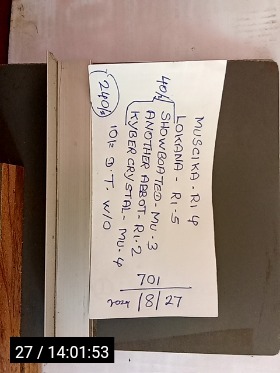 MUSCIKA - R1 4
LOKANA - R1 - 5
40/- SHOWBOATED - MU - 3
ANOTHER ABBOT - R1 - 2
KYBER CRYSTAL - MU - 4
240/-
10/= D.T. W/O
701
18/27
27 / 14:01:53